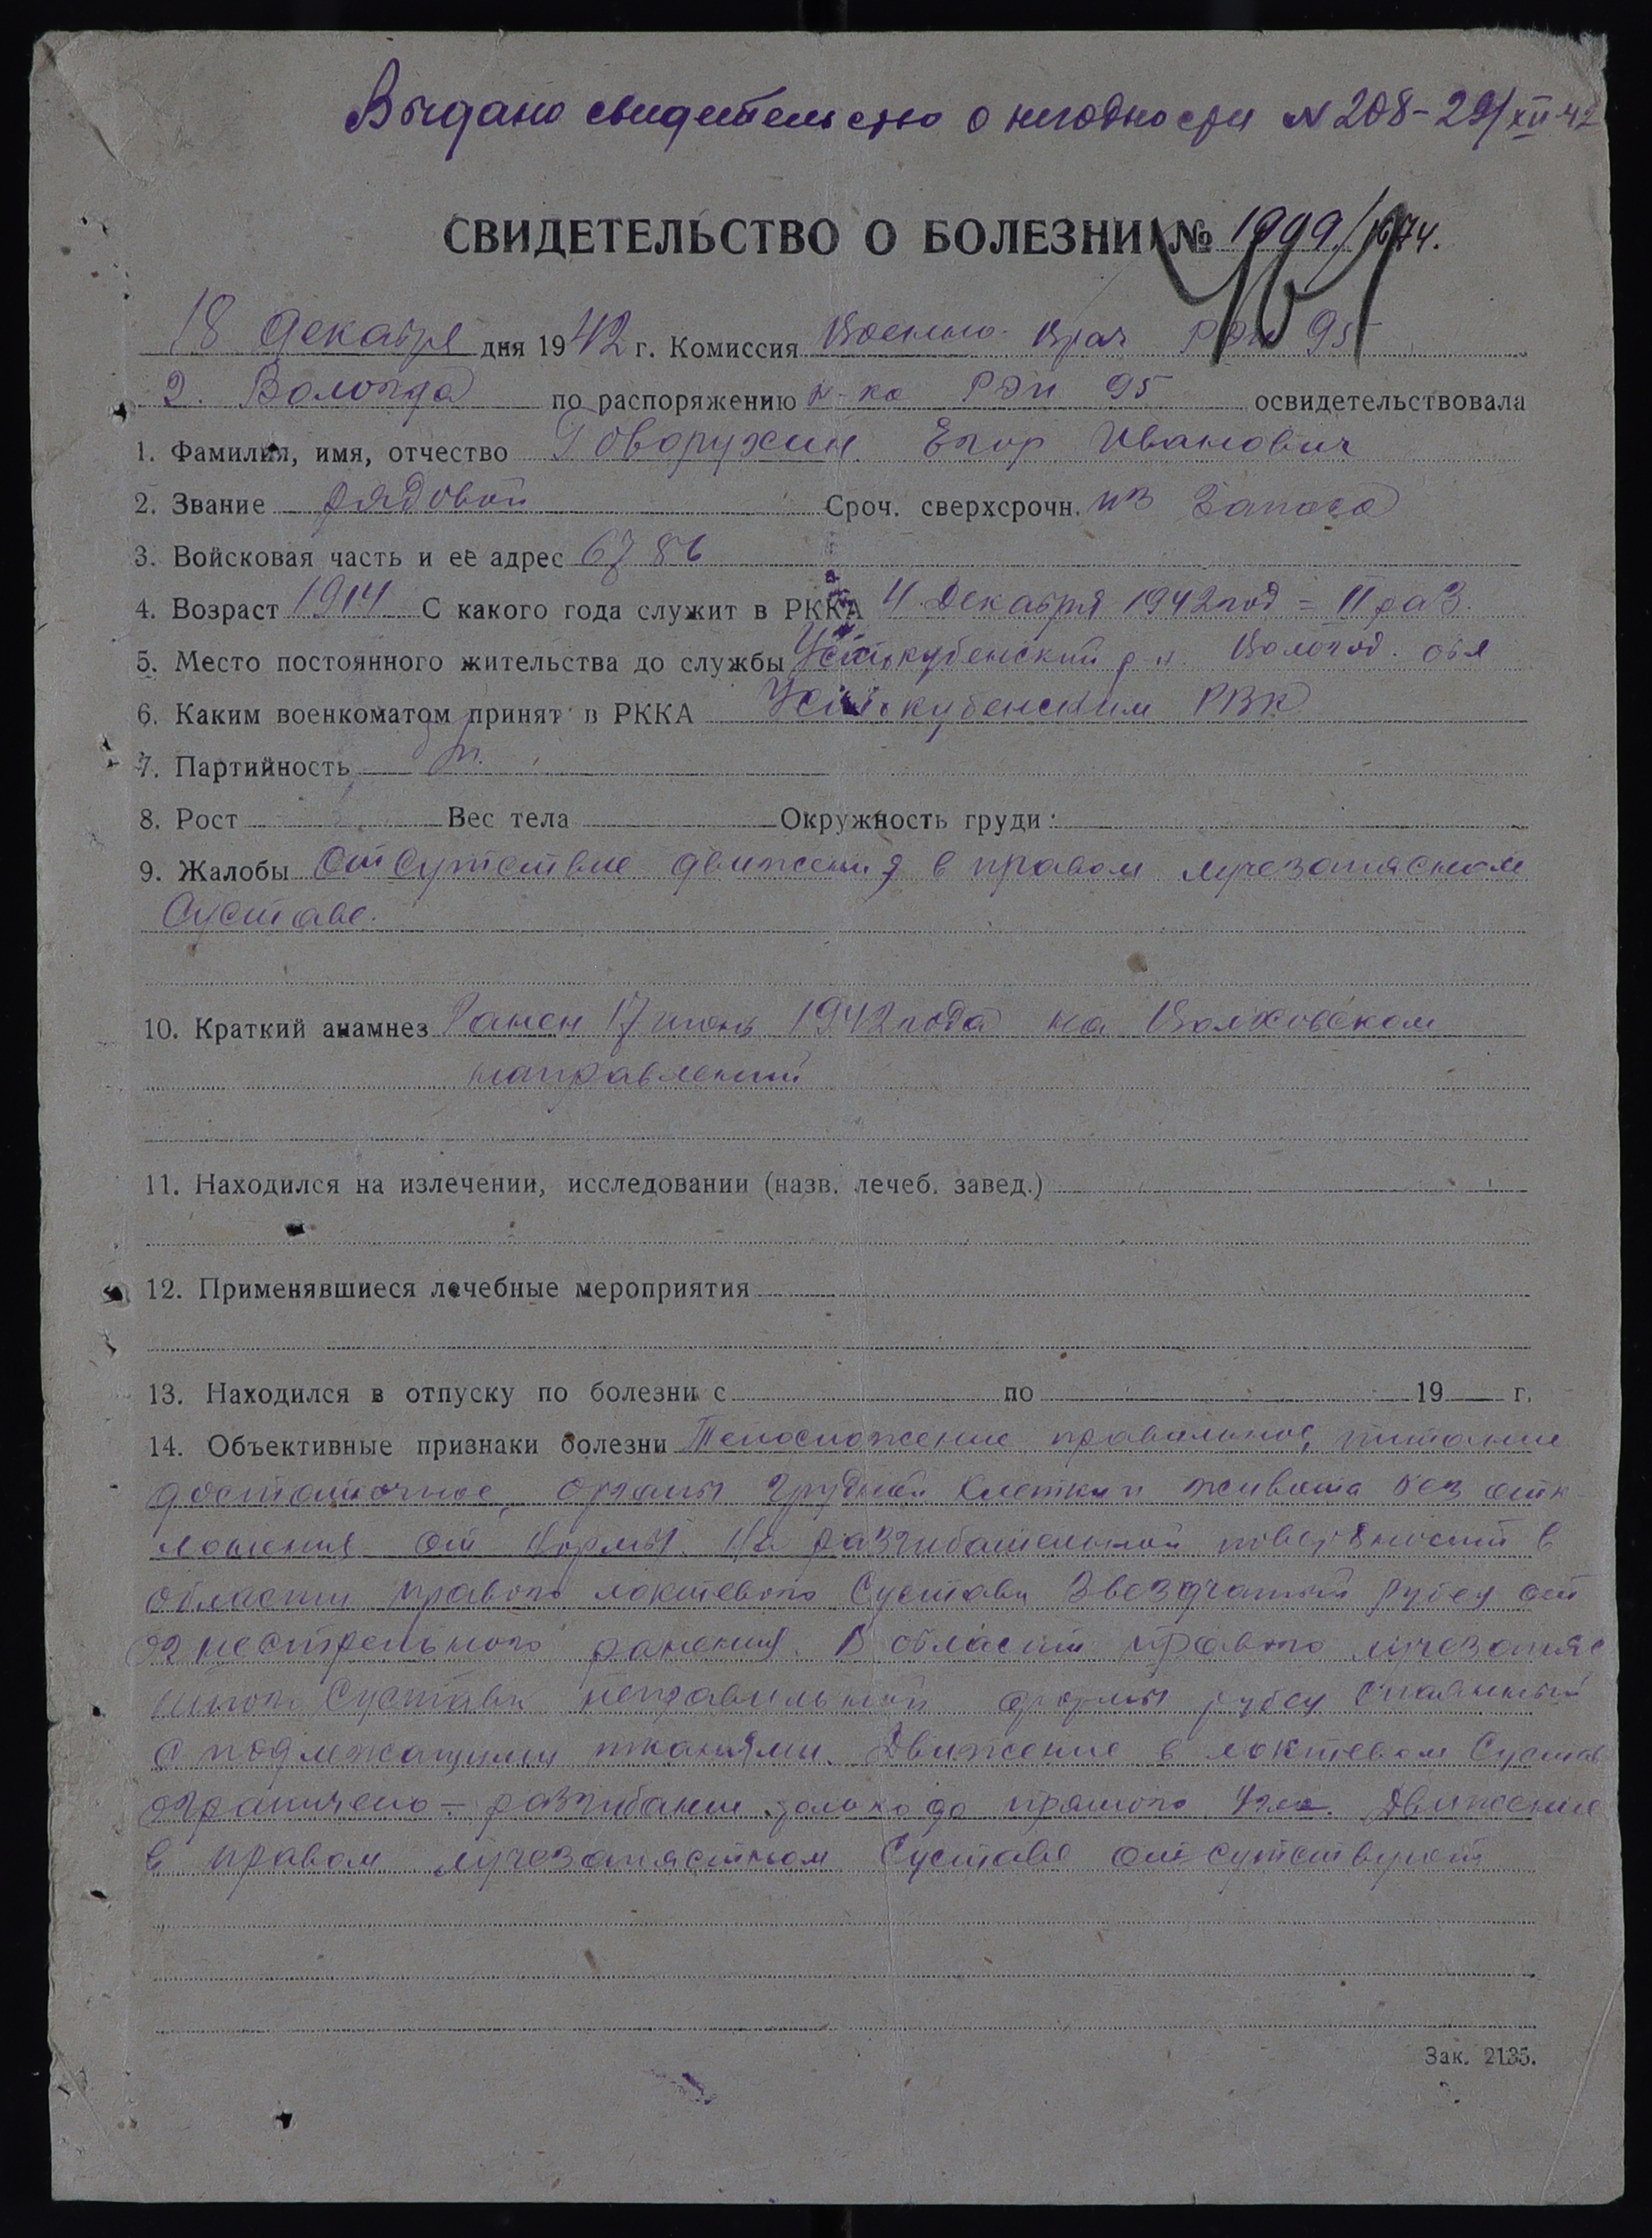 Выдано свидетельство о негодности N 208-29/XII-42
СВИДЕТЕЛЬСТВО О БОЛЕЗНИ № 1999/1674.
18 декабря дня 1942 г. Комиссия Военно-Врач РЭП 95
г. Вологда по распоряжению н-ка РЭП 95 освидетельствовала
1. Фамилия, имя, отчество Говорухин Егор Иванович
2. Звание рядовой Сроч. сверхсрочн. из запаса
3. Войсковая часть и ее адрес 6786
4. Возраст 1914 С какого года служит в РККА 4 Декабря 1942 год = II раз.
5. Место постоянного жительства до службы Устькубенский р-н. Вологод. обл
6. Каким военкоматом принят в РККА Усть-кубенским РВК
7. Партийность б/п.
8. Рост Вес тела Окружность груди:
9. Жалобы Отсутствие движения в правом лучезапястном
Суставе.
10. Краткий анамнез Ранен 17 1942 года на Волховском
направлении
11. Находился на излечении, исследовании (назв. лечеб. завед.)
12. Применявшиеся лечебные мероприятия
13. Находился в отпуску по болезни с по 19 г.
14. Объективные признаки болезни Телосложение правильное, питание
достаточное, органы грудной клетки и живота без отк
лонения от нормы. На разгибательной поверхности в
области правого локтевого Сустава Звездчатый рубец от
огнестрельного ранения. В области правого лучезапяс
тного Сустава неправильной формы рубец спаянный
с подлежащими тканями. Движение в локтевом Сустав
ограничено - разгибание только до прямого угла. Движение
в правом лучезапястном Суставе отсутствует
Зак. 2135.